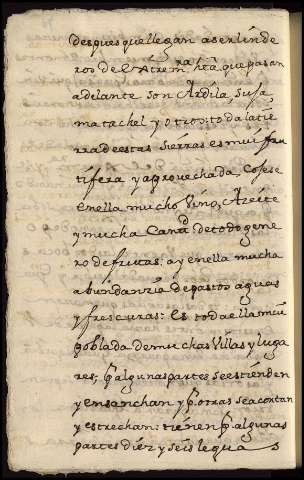 despues que llegan a ser linde
ros de la estrem.ra hta que pasan
adelante son Ardila, Sufa,
matachel y otros toda la tie
rra de estas sierras es mui fru
tifera y aprovechada, cojese
en ella mucho Vino, Azeite
y mucha de todo gene
ro de frutas: ay en ella mucha
abundanzia de pastos aguas
y frescuras: Es toda ella mui
poblada de muchas Villas y luga
res; Pr algunas partes se estienden
y ensanchan y pr otras se acortan
y estrechan: tienen Pr algunas
partes diez y seis leguas